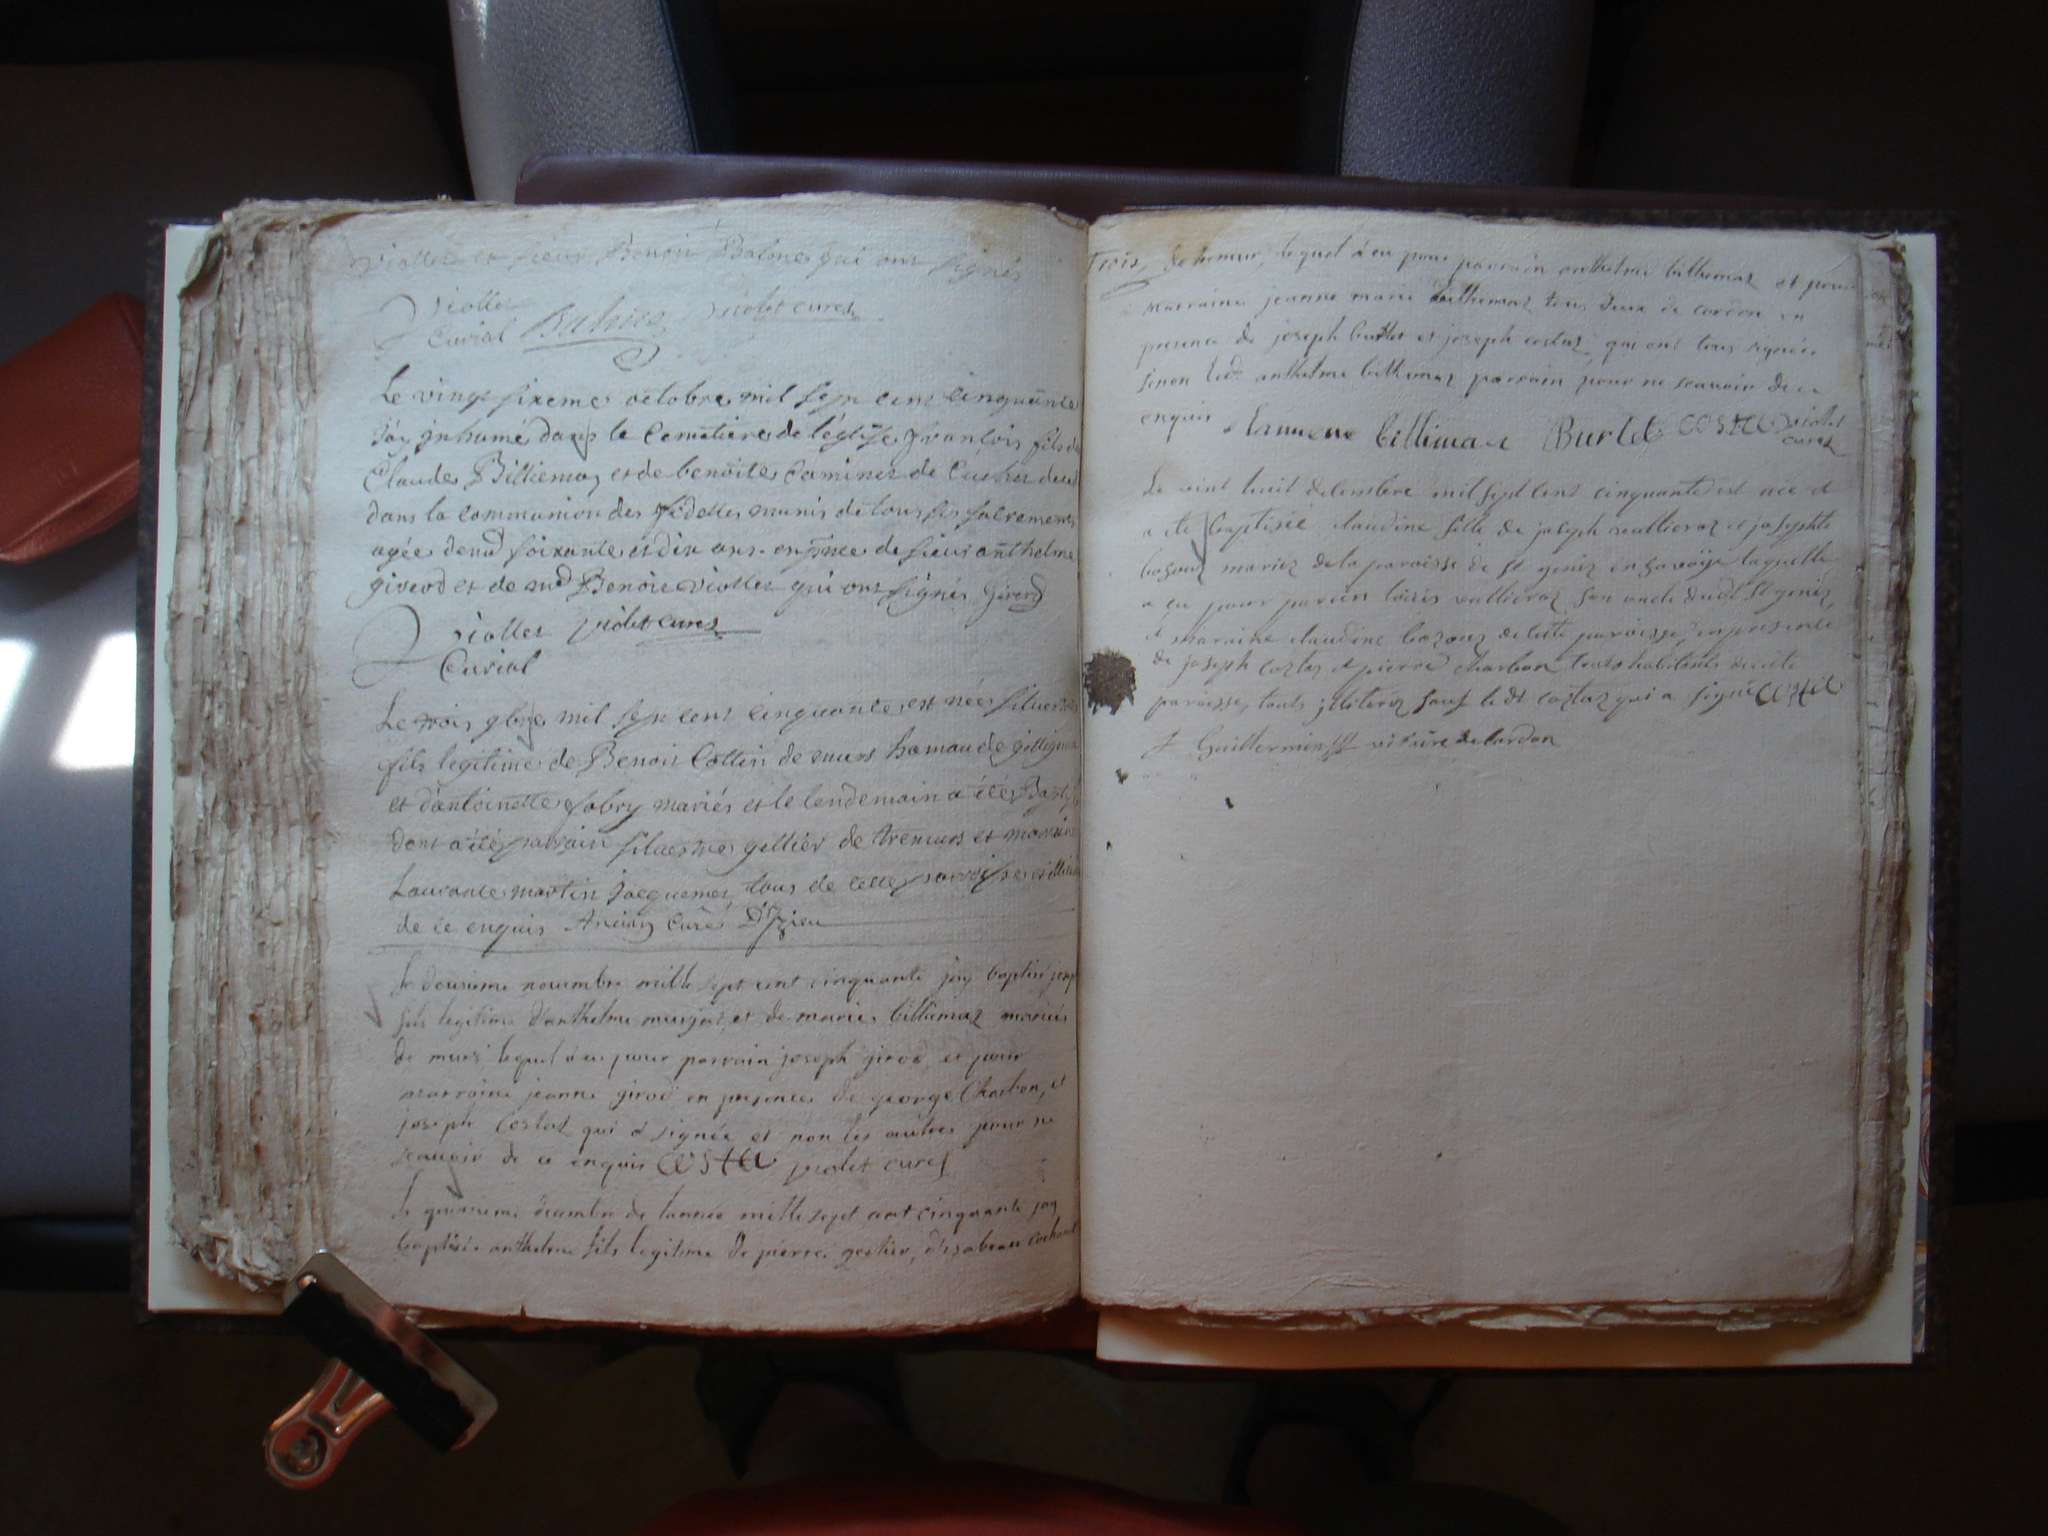 viollet et sieur Benoit Balme qui ont signés
Viollet
Curial violet curez
Le vingt sixeme octobre mil sept cent cinquante
j'ay inhumé dans le Cemetiere de l'église françois fils de
Claude Billiemaz et de benoite Caminet de
dans la communion des fidelles munis de tous ses sacrements
agée de soixante et dix ans en pnce de sieur anthelme
giverd et de md Benoit viollet qui ont signés Giverd
Viollet violet curez
Curial
Le trois 9bre mil sept cent cinquante est née silvestre
fils legitime de Benoit Cottin de murs hamau de
et d'antoinette fabry mariés et le lendemain a été
dont a été parrain silvestre gellier de et marraine
Laurance martin jacquemet tous de cette parroisse
de ce enquis Ancian Curé D'Izieu
le deuxieme novembre mille sept cent cinquante jay baptisé
fils legitime d'anthelme et de marie billiemaz mariés
de murs lequel a eu pour parrain joseph girod et pour
marraine jeanne girod en presence de george Charbon, et
joseph Costaz qui a signée et non les autres pour ne
scavoir de ce enquis COSTA violet curez
le quinzieme decembre de lannée mille sept cent cinquante jay
baptisée anthelme fils legitime de pierre
Trois, lequel a eu pour parrain anthelme billiemaz et pour
marraine jeanne marie billiemaz tous deux de cordon en
presence de joseph burlet et joseph costaz qui ont tous signée
sinon led. anthelme billiemaz parrain pour ne scavoir de ce
enquis billimaz Burlet COSTA violet
curez
Le vint huit decembre mil sept cent cinquante est née et
a été baptisée claudine fille de joseph vullieroz et josephte
mariez de la paroisse de st genix en savoÿe laquelle
a eu pour parein vullieroz son oncle dudt St genix,
et maraine claudine de cette paroisse, en presence
de joseph costaz et pierre charbon touts habitants de cette
paroisse, touts illiterez sauf le dt costaz qui a signé COSTA
Guillermin vicaire de Cordon